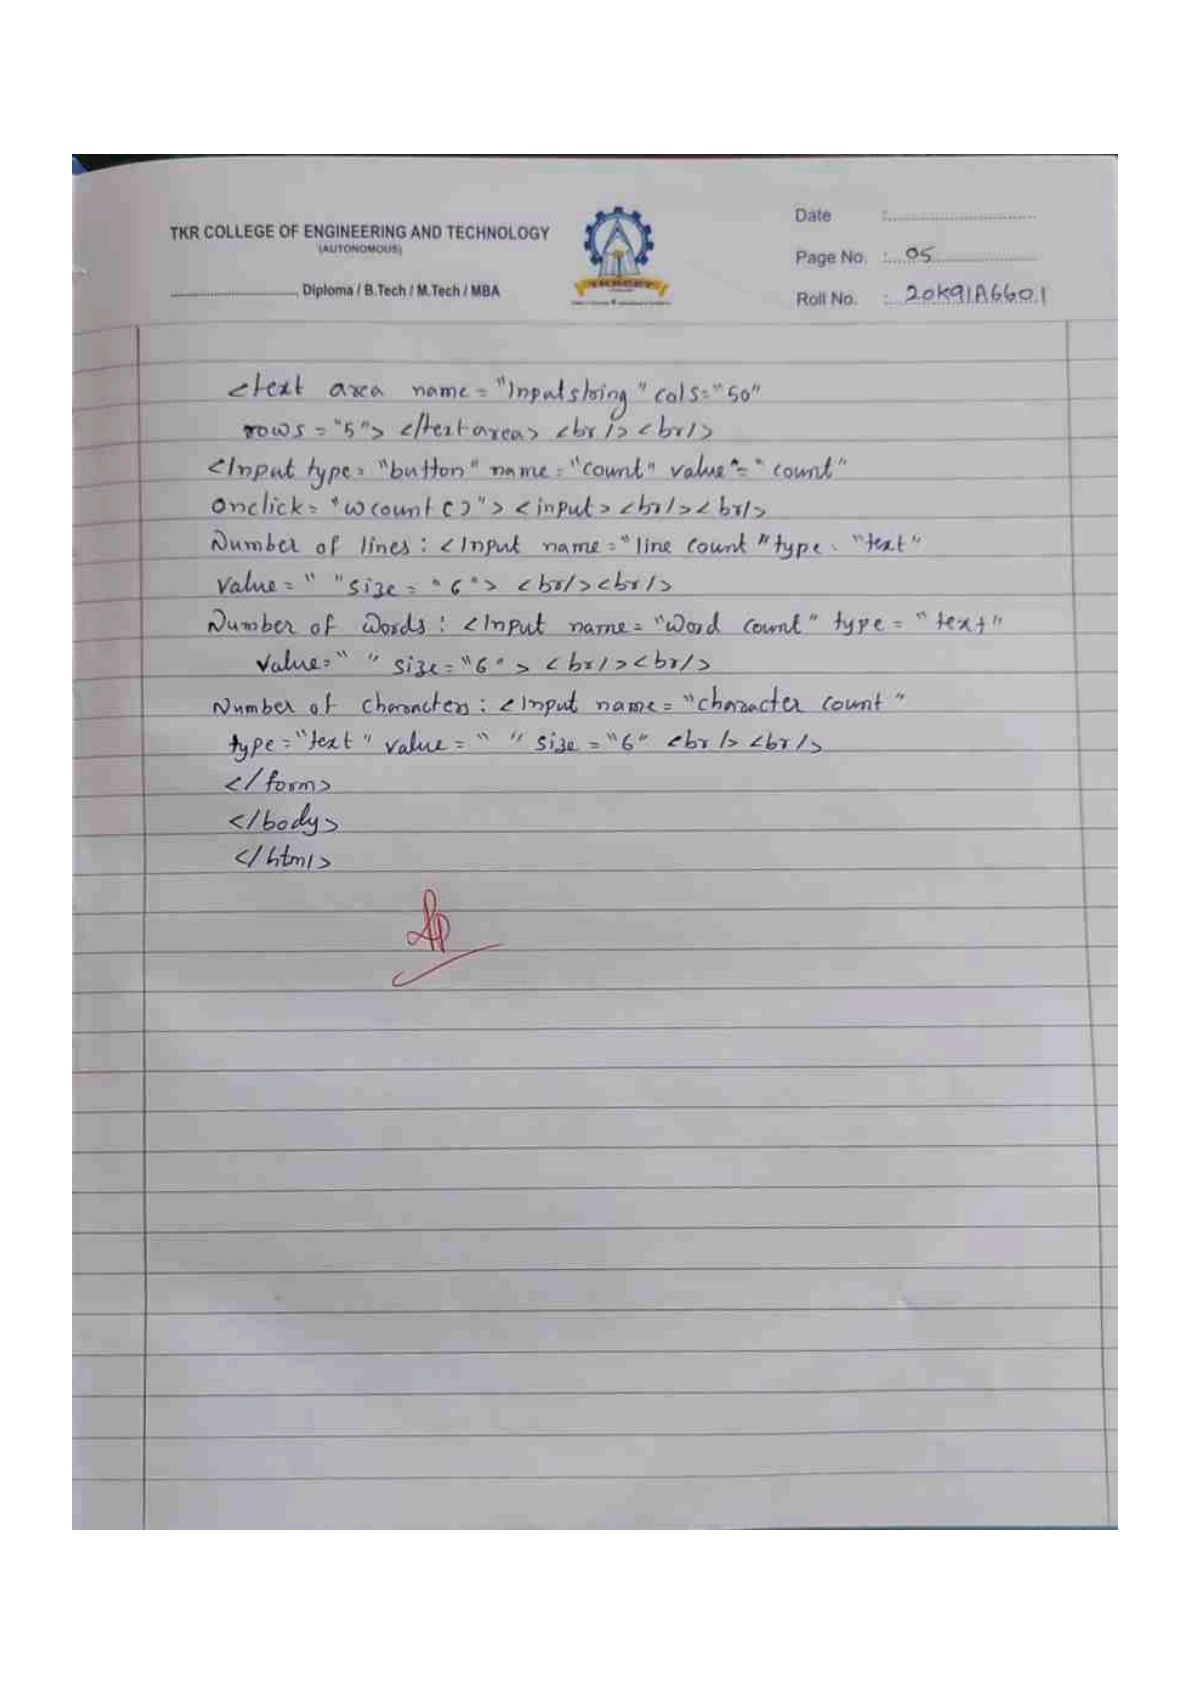 TKR COLLEGE OF ENGINEERING AND TECHNOLOGY
(AUTONOMOUS)
Diploma / B.Tech / M.Tech / MBA
TKRCET
Date :
Page No. : 05
Roll No. : 20K91A6601
<text area name="Inputstring" cols="50"
rows="5"> </textarea> <br/> <br/>
<Input type="button" name="count" value="count"
Onclick="wcount()"> <input> <br/><br/>
Number of lines : <Input name="line count" type="text"
Value=" " size="6"> <br/><br/>
Number of Words : <Input name="Word count" type="text"
Value=" " size="6"> <br/><br/>
Number of characters : <Input name="character count"
type="text" value=" " size="6" <br/> <br/>
</form>
</body>
</html>